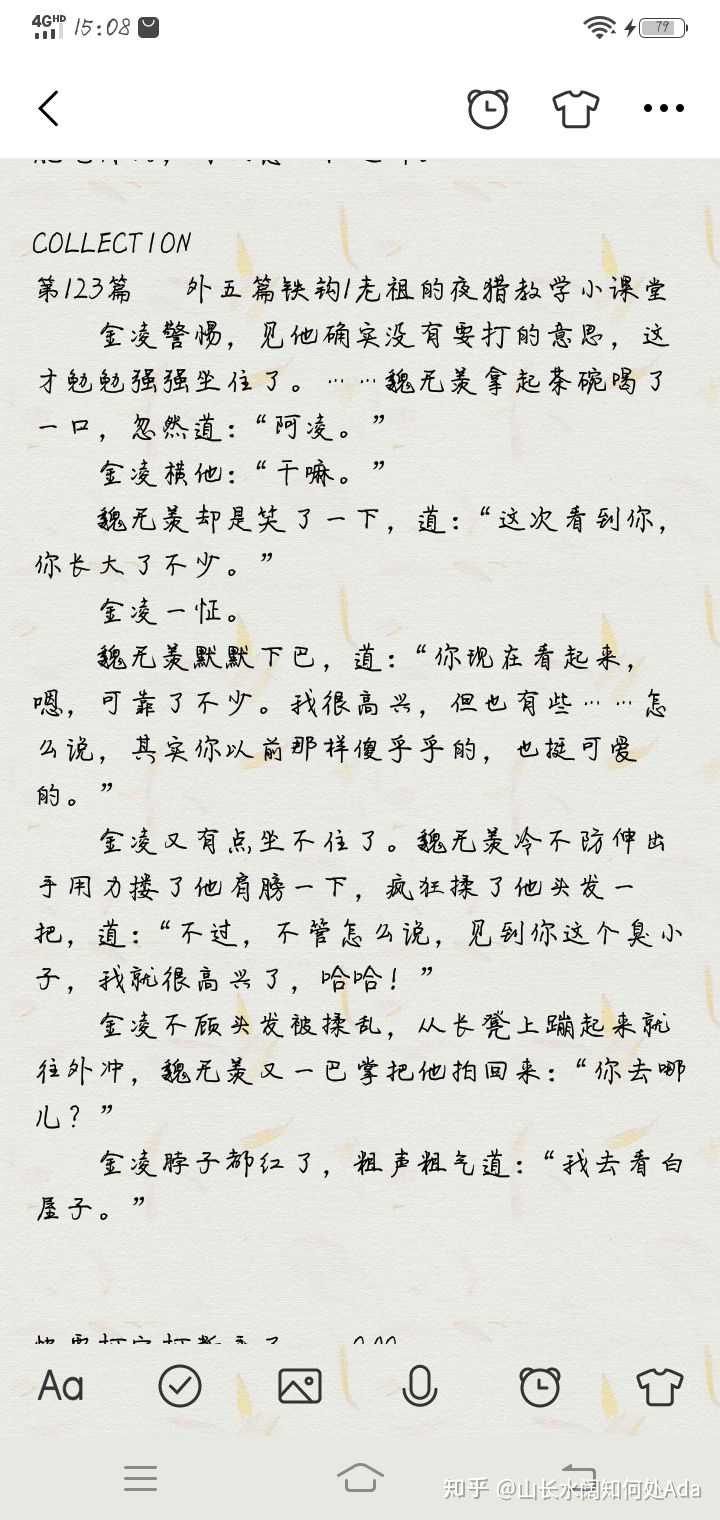 4G HD 15:08 79
COLLECTION
第123篇 外五篇铁钩1老祖的夜猎教学小课堂
金凌警惕，见他确实没有要打的意思，这
才勉勉强强坐住了。……魏无羡拿起茶碗喝了
一口，忽然道：“阿凌。”
金凌横他：“干嘛。”
魏无羡却是笑了一下，道：“这次看到你，
你长大了不少。”
金凌一怔。
魏无羡默默下巴，道：“你现在看起来，
嗯，可靠了不少。我很高兴，但也有些……怎
么说，其实你以前那样傻乎乎的，也挺可爱
的。”
金凌又有点坐不住了。魏无羡冷不防伸出
手用力搂了他肩膀一下，疯狂揉了他头发一
把，道：“不过，不管怎么说，见到你这个臭小
子，我就很高兴了，哈哈！”
金凌不顾头发被揉乱，从长凳上蹦起来就
往外冲，魏无羡又一巴掌把他拍回来：“你去哪
儿？”
金凌脖子都红了，粗声粗气道：“我去看白
屋子。”
Aa
知乎 @山长水阔知何处Ada